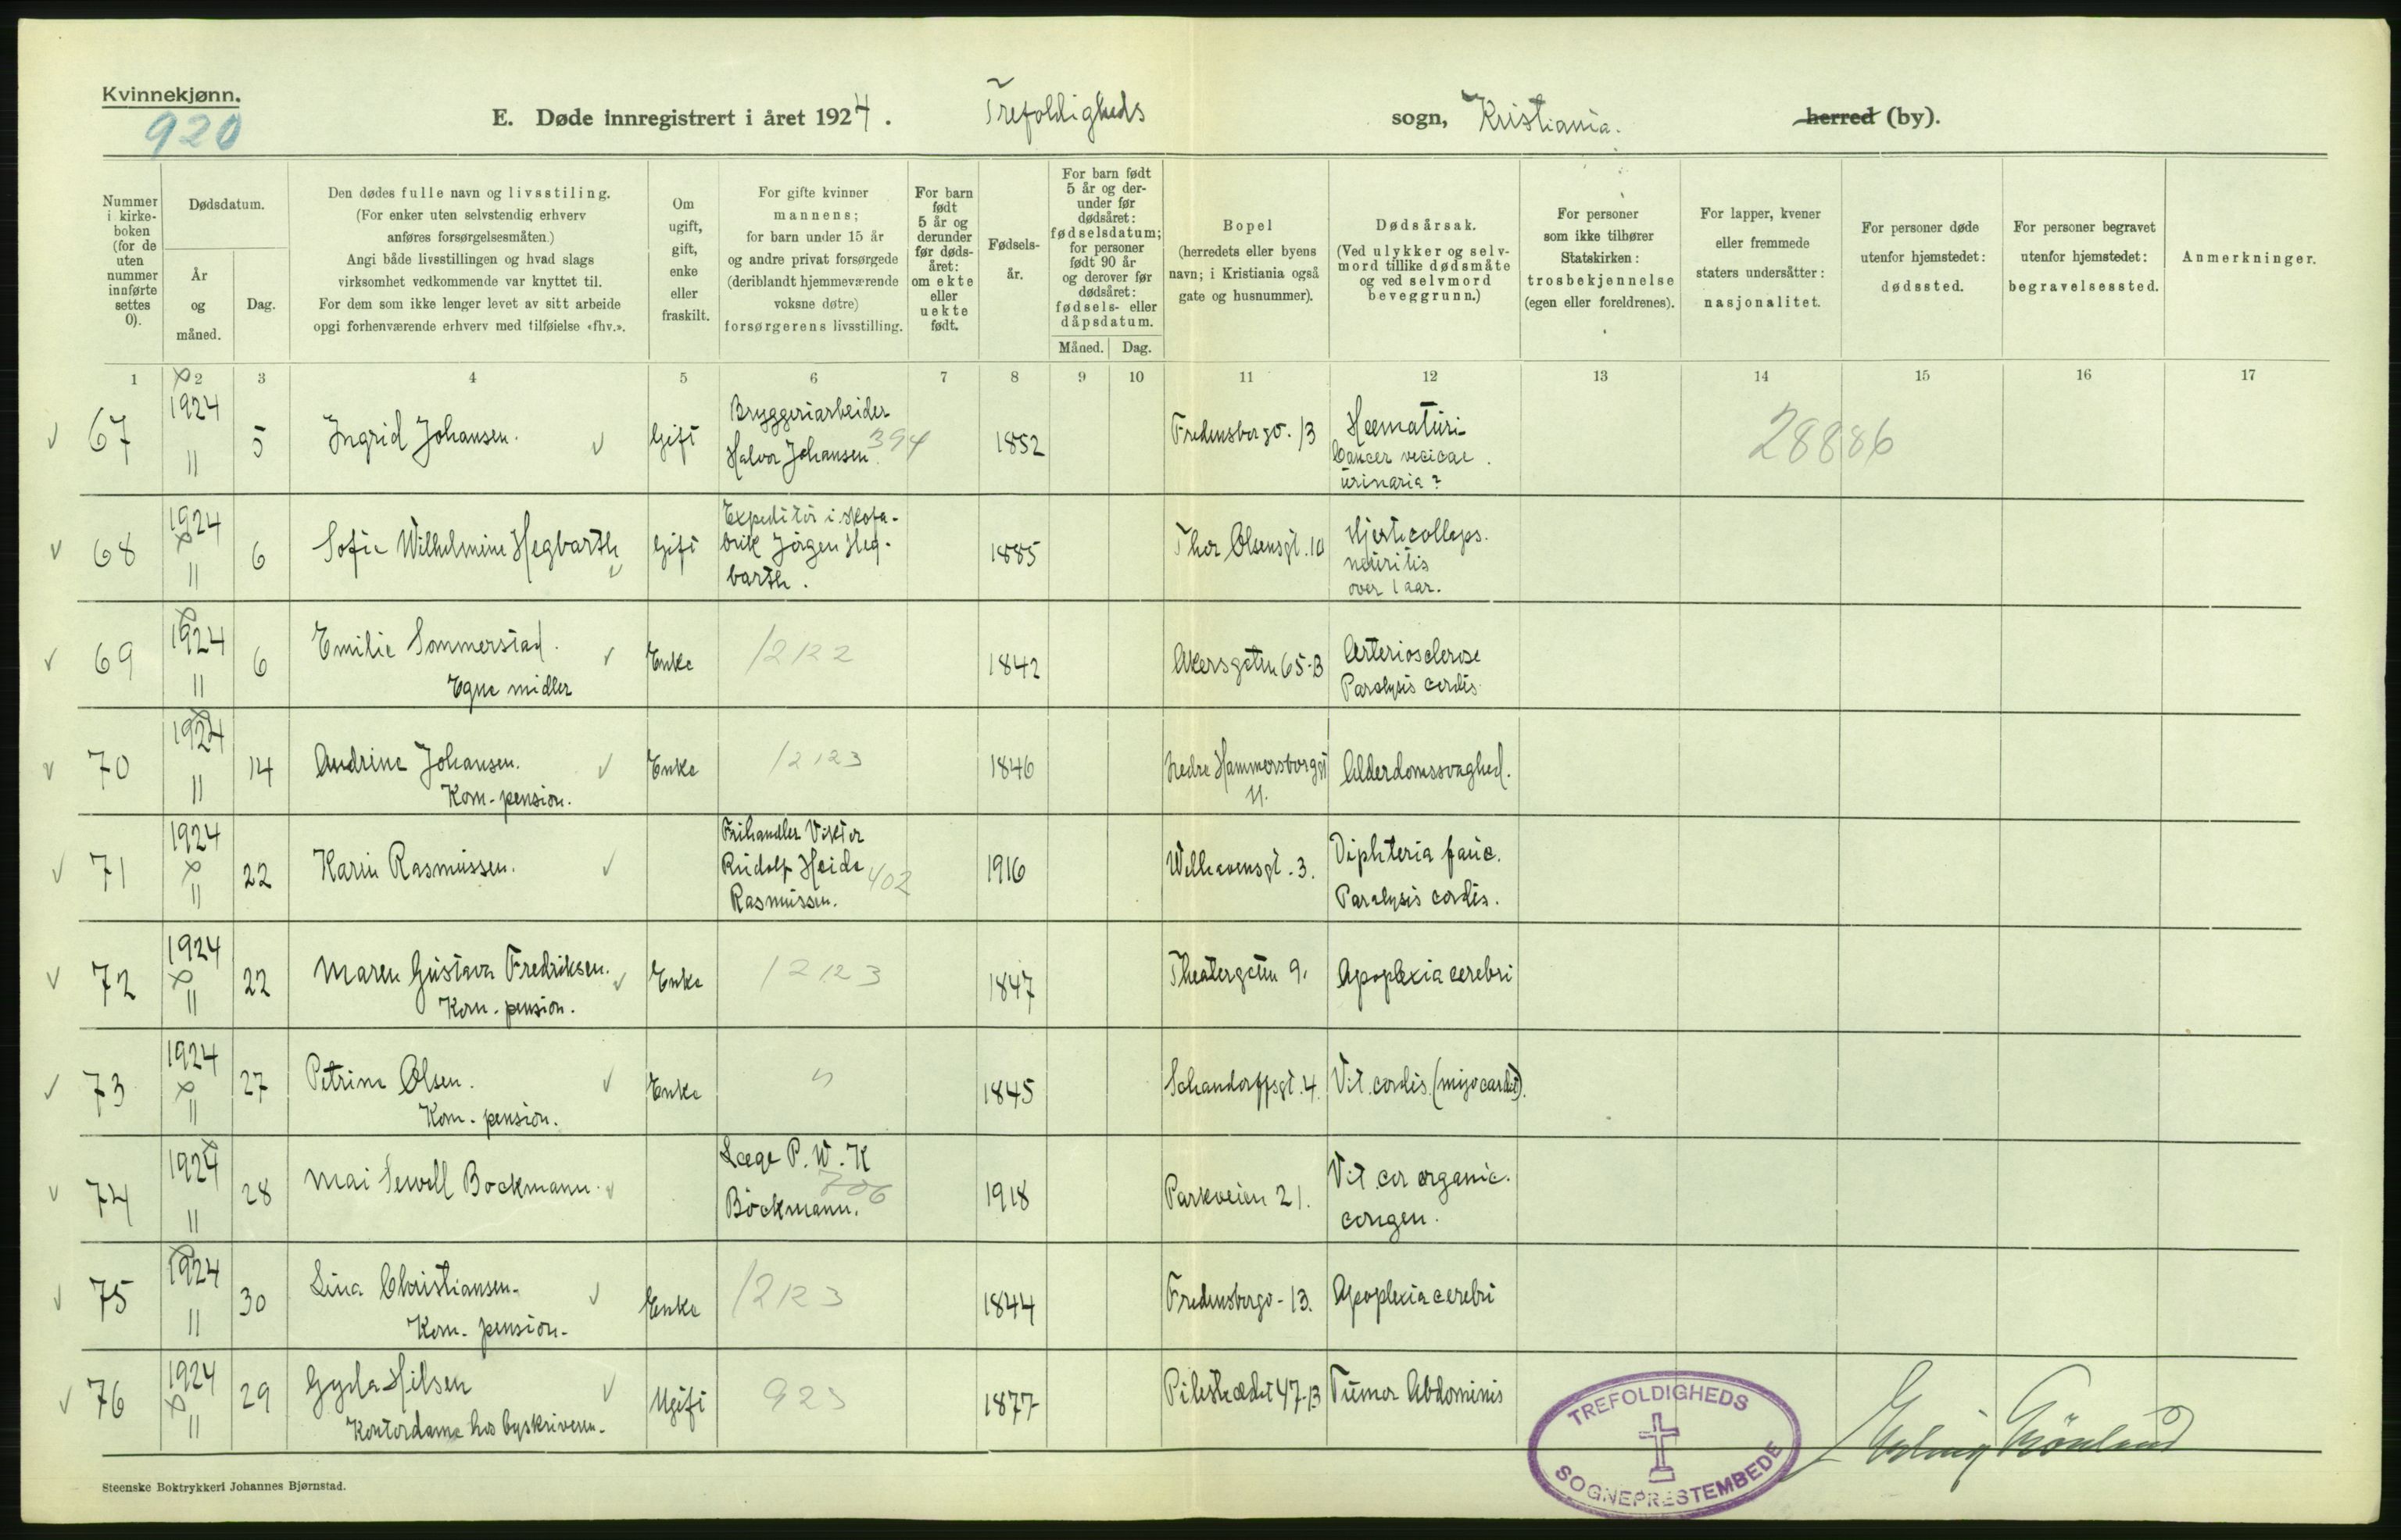 Kvinnekjønn.
920
E. Døde innregistrert i året 1924. Trefoldigheds sogn, Kristiania. herred (by).
Nummer i kirke-boken (for de uten nummer innførte settes 0).
Dødsdatum.
År og måned.
Dag.
Den dødes fulle navn og livsstiling.
(For enker uten selvstendig erhverv
anføres forsørgelsesmåten.)
Angi både livsstillingen og hvad slags
virksomhet vedkommende var knyttet til.
For dem som ikke lenger levet av sitt arbeide
opgi forhenværende erhverv med tilføielse «fhv.».
Om ugift, gift, enke eller fraskilt.
For gifte kvinner
mannens;
for barn under 15 år
og andre privat forsørgede
(deriblandt hjemmeværende
voksne døtre)
forsørgerens livsstilling.
For barn født 5 år og derunder før døds-året: om ekte eller uekte født.
Fødsels-år.
For barn født 5 år og der-under før dødsåret: fødselsdatum; for personer født 90 år og derover før dødsåret: fødsels- eller dåpsdatum.
Måned. Dag.
Bopel
(herredets eller byens
navn; i Kristiania også
gate og husnummer).
Dødsårsak.
(Ved ulykker og selv-
mord tillike dødsmåte
og ved selvmord
beveggrunn.)
For personer
som ikke tilhører
Statskirken:
trosbekjennelse
(egen eller foreldrenes).
For lapper, kvener
eller fremmede
staters undersåtter:
nasjonalitet.
For personer døde
utenfor hjemstedet:
dødssted.
For personer begravet
utenfor hjemstedet:
begravelsessted.
Anmerkninger.
1 2 3 4 5 6 7 8 9 10 11 12 13 14 15 16 17
67 1924 11 5 Ingrid Johansen. Gift Bryggeriarbeider Halvor Johansen 394 1852 Fredensborgv. 13 Hæmaturi Cancer vecicae urinaria? 28886
68 1924 11 6 Sofie Wilhelmine Hegbarth Gift Expeditör i skofabrik Jörgen Hegbarth. 1885 Thor Olsensgt. 10 Hjertecollaps. neuritis over 1 aar.
69 1924 11 6 Emilie Sommerstad. Egne midler Enke 12122 1842 Akersgaten 65-B Arteriosclerose Paralysis cordis.
70 1924 11 14 Andrine Johansen. Kom-pension. Enke 12123 1846 Nedre Hammersborggt 11. Alderdomssvaghed.
71 1924 11 22 Karin Rasmussen. Frihandler Viktor Rudolf Heide Rasmussen. 402 1916 Welhavensgt. 3. Diphteria fauc. Paralysis cordis.
72 1924 11 22 Maren Gustava Fredriksen. Kom-pension. Enke 12123 1847 Theatergaten 9. Apoplexia cerebri
73 1924 11 27 Petrine Olsen. Kom-pension. Enke " 1845 Schandorffsgt. 4. Vit. cordis. (myocardit).
74 1924 11 28 Mai Sewell Bockmann. Læge P. W. K Böckmann. 706 1918 Parkveien 21. Vit. cor organic. congen.
75 1924 11 30 Lina Christiansen. Kom-pension. Enke 12123 1844 Fredensborgv-13. Apoplexia cerebri
76 1924 11 29 Gyda Nilsen Kontordame hos byskriveren. Ugift 923 1877 Pilestrædet 47-B Tumor Abdominis
TREFOLDIGHEDS
SOGNEPRESTEMBEDE
Steenske Boktrykkeri Johannes Bjørnstad.